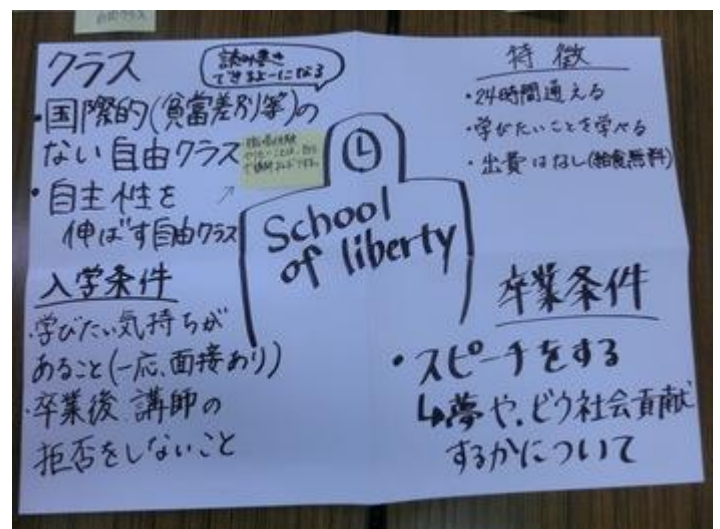 クラス
読み書き
できるよーになる
・国際的(貧富差別等)の
ない自由クラス
・自主性を
伸ばす自由クラス
School
of liberty
特徴
・24時間通える
・学びたいことを学べる
・出費はなし(給食無料)
入学条件
・学びたい気持ちが
あること(一応、面接あり)
・卒業後、講師の
拒否をしないこと
卒業条件
・スピーチをする
↳夢や、どう社会貢献
するかについて